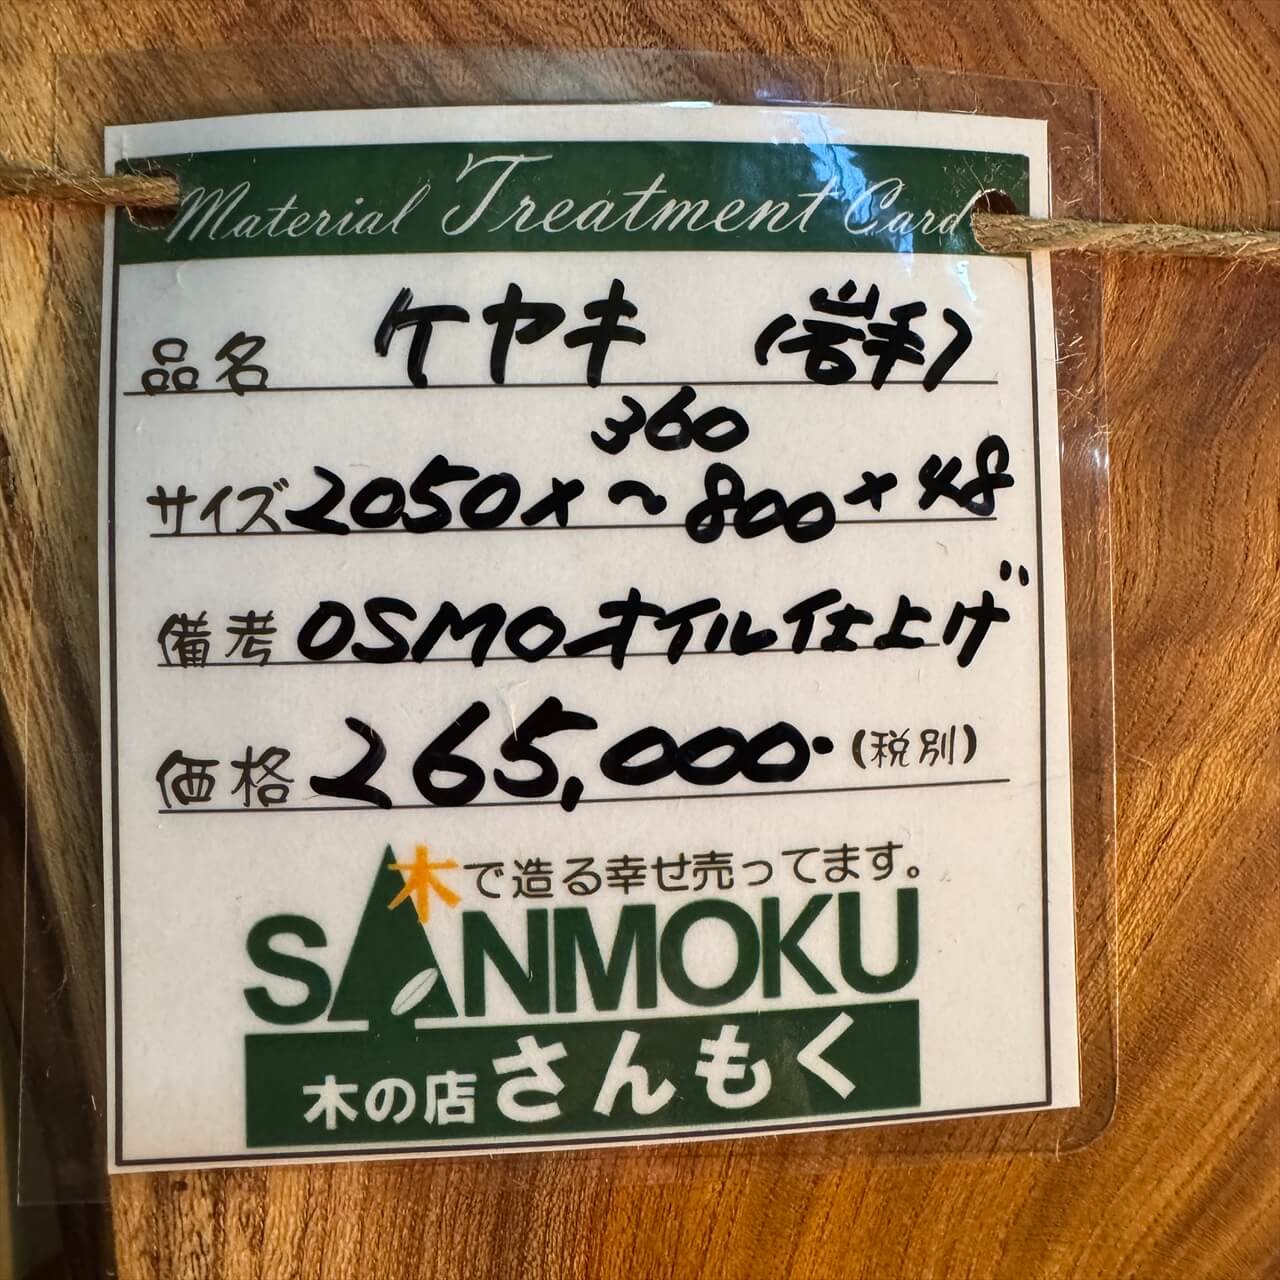 Material Treatment Card
品名 ケヤキ (岩手)
360
サイズ 2050×～800×48
備考 OSMOオイル仕上げ
価格 265,000.(税別)
木で造る幸せ売ってます。
SANMOKU
木の店さんもく